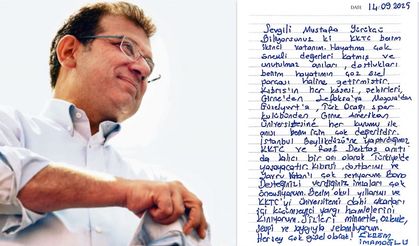 DATE: 14.09.2025
Sevgili Mustafa Yürükaş
Biliyorsunuz ki KKTC benim
ikinci vatanım. Hayatıma çok
önemli değerleri katmış ve
unutulmaz anıları, dostlukları
benim hayatımın çok özel
parçası haline getirmiştir.
Kıbrıs'ın her köşesi, şehirleri,
Girne'den Lefkoşa'ya Magosa'dan
Güzelyurt'a, Türk Ocağı spor
kulübünden, Girne Amerikan
Üniversitesine her kurumu ile
anısı benim için çok değerlidir.
İstanbul Beylikdüzü'ne yaptırdığımız
KKTC ve Rauf Denktaş anıtı
da kalıcı bir anı olarak Türkiye'de
yaşayacaktır. Kıbrıs'ı, dostlarımı ve
Yavru Vatan'ı çok seviyorum. Bana
Desteğinizi verdiğiniz imzaları çok
önemsiyorum. Benim okul yıllarımı ve
KKTC'yi Üniversitemi dahi çıkarları
için kullanmaya yargı hamlelerini
kınıyorum. Sizleri minnetle, özlemle,
sevgi ve saygıyla selamlıyorum.
Herşey çok güzel olacak! EKREM
İMAMOĞLU